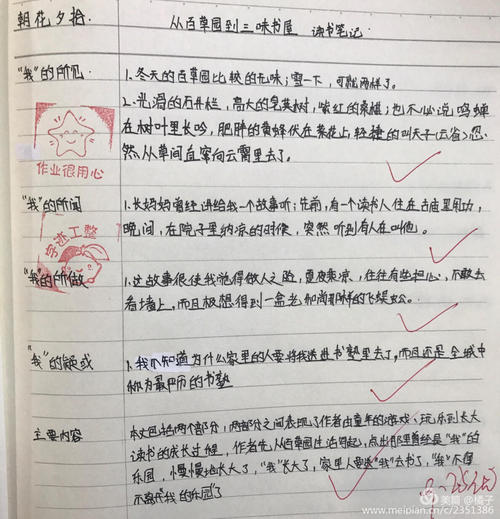 朝花夕拾
从百草园到三味书屋 读书笔记
"我"的所见
1.冬天的百草园比较的无味；雪一下，可就两样了。
2.光滑的石井栏，高大的皂荚树，紫红的桑椹；也不必说鸣蝉
在树叶里长吟，肥胖的黄蜂伏在菜花上，轻捷的叫天子(云雀)忽
然从草间直窜向云霄里去了。
作业很用心
"我"的所闻
1.长妈妈曾经讲给我一个故事听：先前，有一个读书人住在古庙里用功，
晚间，在院子里纳凉的时候，突然听到有人在叫他。
字迹工整
"我"的所做
1.这故事很使我觉得做人之险，夏夜乘凉，往往有些担心，不敢去
看墙上，而且极想得到一盒老和尚那样的飞蜈蚣。
"我"的疑惑
1.我不知道为什么家里的人要将我送进书塾里去了，而且还是全城中
称为最严厉的书塾
主要内容
本文包括两个部分，两部分之间表现了作者由童年的游戏、玩乐到长大
读书的成长过程，作者先从百草园过泊写起，点出那里曾经是"我"的
乐园，慢慢地长大了，"我"长大了，家里人要送"我"去书了，"我"不得
不离开我的乐园了
美篇 @橘子
www.meipian.cn/c/2351386